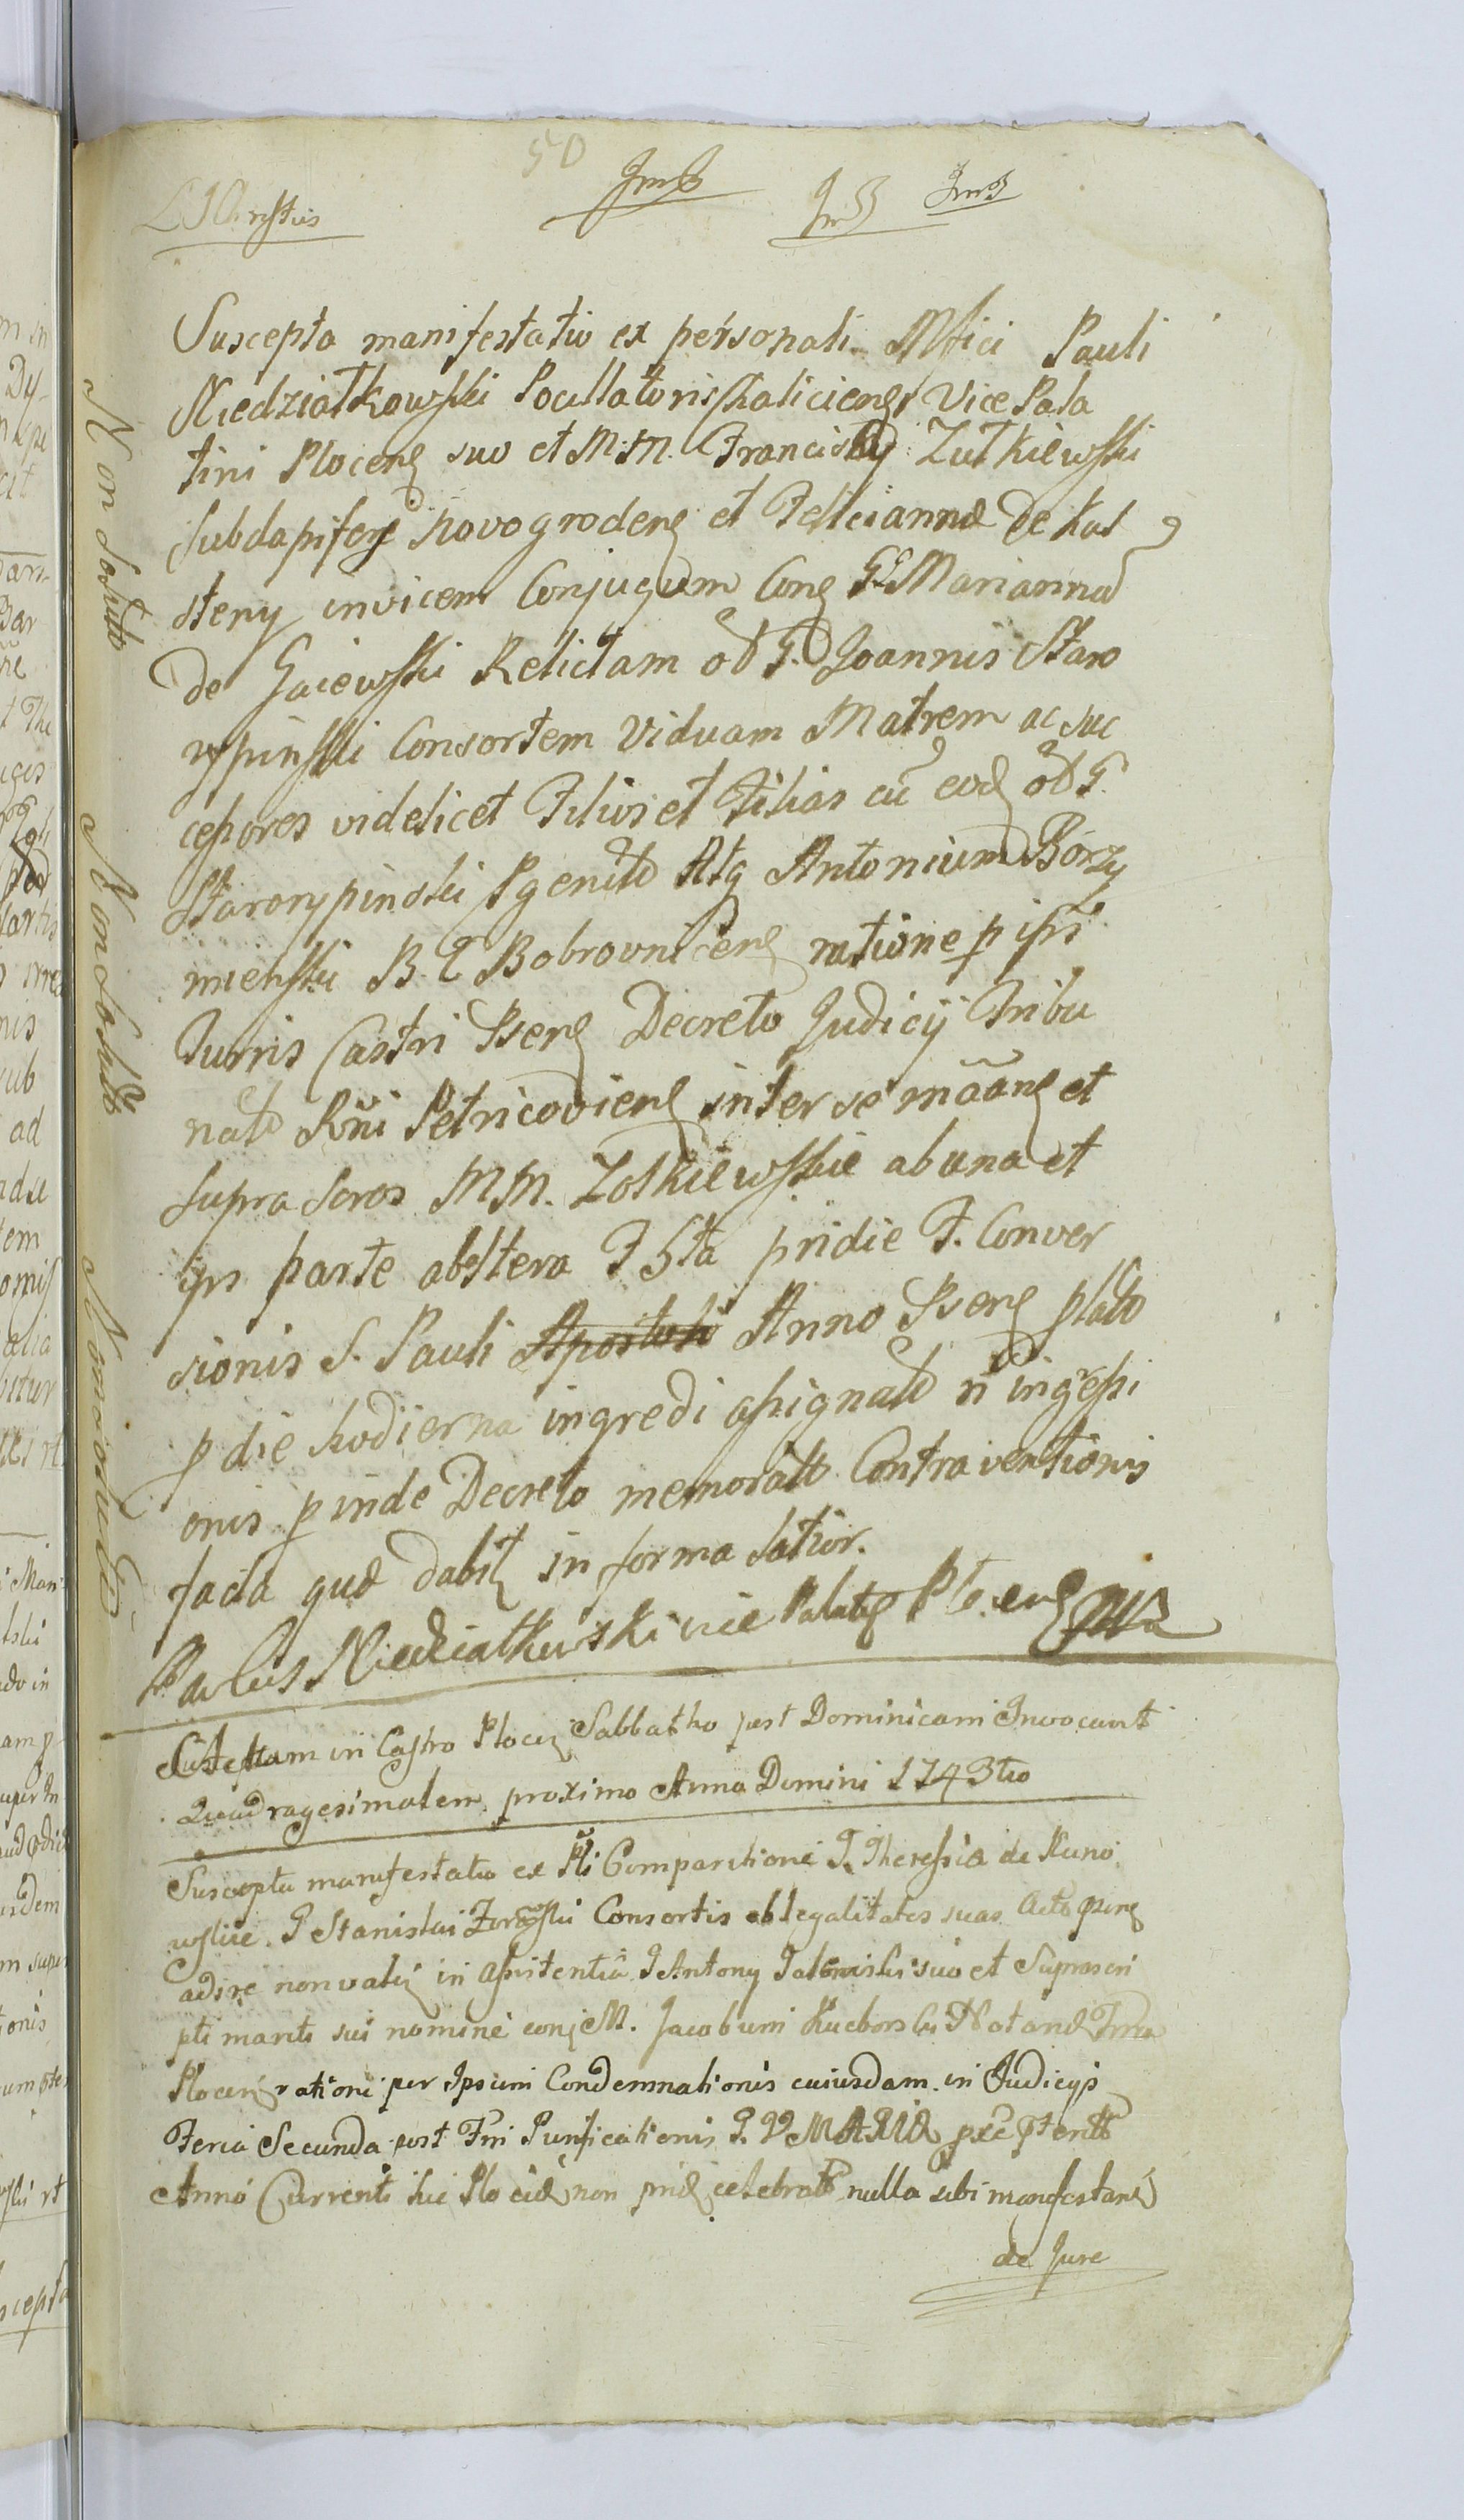 50
Suscepta manifestatio ex personali Mfici Pauli
Niedziałkowski Pocillatoris Haliciens Vice Pala
tini Plocens suo et M.M. Francisci Zułkiewski
Subdapiferi Novogrodens et Felicianna de Kal
steny invicem Conjugum Cons G Marianna
de Gaiewski Relictam oł G. Joannis Staro
rypinski Consortem Viduam Matrem ac suc
cessores videlicet Filios et Filias cu eod oł G.
Starorypinski Pgenito Atq Antonium Borzy
mienski B. C Bobrovnicens ratione p ipsi
Turris Castri Psens Decreto Judicij Tribu
nalo Rni Petricoviens inter se maans et
supra scros MM. Zolkiewskie ab una et
ips parte ab altera F 5ta pridie F. Conver
sionis S. Pauli Apostoli Anno Psens plato
p die hodierna ingredi assignato n ingressi
onis pinde Decreto memorato Contraventionis
facta qua dabit in forma latior.
Paulus Niedziałkowski vice Palats Plocens mp
Actum in Castro Plocen Sabbatho post Dominicam Invocavit
Quadragesimalem proximo Anno Domini 1743tio
Suscepta manifestatio ex Pli Comparitione G. Theressia de Kuno
wskie G Stanislai Consortis ob legalitates suas Acta psens
adire non valen in assistentia G Antony suo et Suprascri
pti mariti sui nomine conq M. Jacobum Kucborski Notand
Plocen ratione per Ipsum Condemnationis cuiusdam in Judicys
Feria Secunda post Fm Purificationis B. V MARIA
Anno Currenti hic Plocia non celebrato nulla sibi manifestans
de Jure
Non soluto
Non Soluto
Non soluto